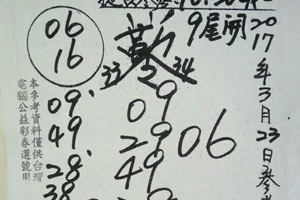 9尾開
2017年3月23日參考
06
16
33 2 34
09
49
28
38
09
29 06
49
29
本參考資料僅供台灣
電腦公益彩券選號用